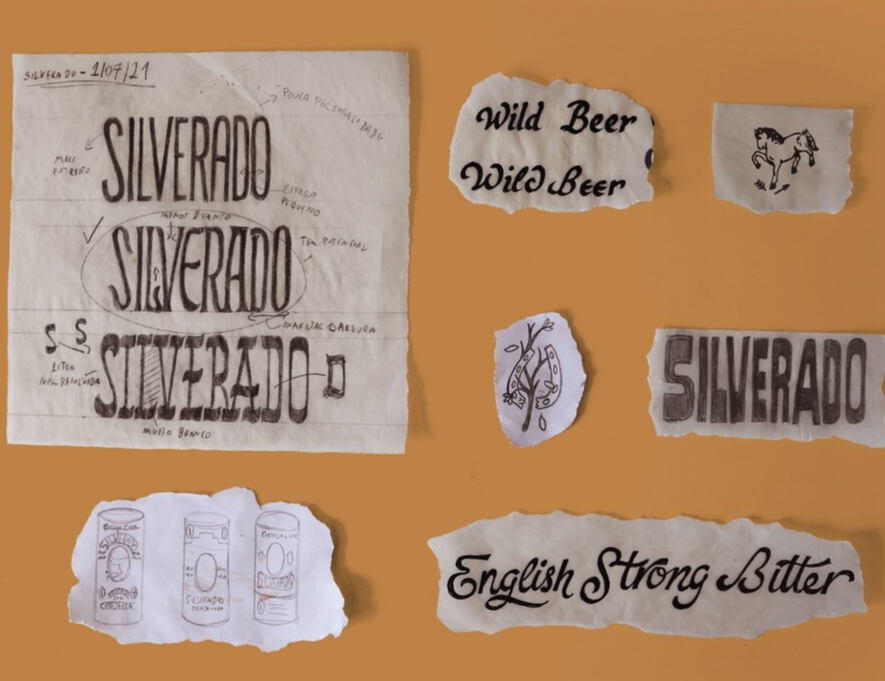 SILVERADO - 1/07/21
POUCA PERSONALIDADE
SILVERADO
MAIS
ESTREITO
ESPAÇO
PEQUENO
MENOS BRANCO
TEM POTENCIAL
SILVERADO
AUMENTAR BARRIGA
S S
MAL RESOLVIDA
SILVERADO
MUITO BRANCO
Wild Beer
Wild Beer
SILVERADO
SILVERADO
SILVERADO
English Strong Bitter